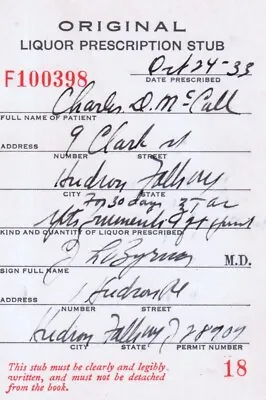 ORIGINAL
LIQUOR PRESCRIPTION STUB
F100398 Oct 24-33
DATE PRESCRIBED
Charles D. McCall
FULL NAME OF PATIENT
9 Clark st
ADDRESS NUMBER STREET
Hudson Falls NY
CITY STATE
For 30 days
KIND AND QUANTITY OF LIQUOR PRESCRIBED
M.D.
SIGN FULL NAME
Hudson
ADDRESS NUMBER STREET
Hudson Falls NY 28909
CITY STATE PERMIT NUMBER
This stub must be clearly and legibly
written, and must not be detached
from the book.
18